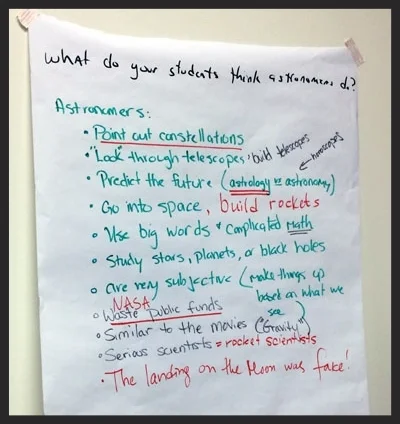 What do your students think astronomers do?
Astronomers:
• Point out constellations
• "Look" through telescopes, build telescopes
• Predict the future (astrology vs astronomy) ← horoscopes
• Go into space, build rockets
• Use big words + complicated Math
• Study stars, planets, or black holes
• are very subjective (make things up based on what we see)
NASA
• Waste public funds
• Similar to the movies ("Gravity")
• Serious scientists = rocket scientists
• The landing on the Moon was fake!